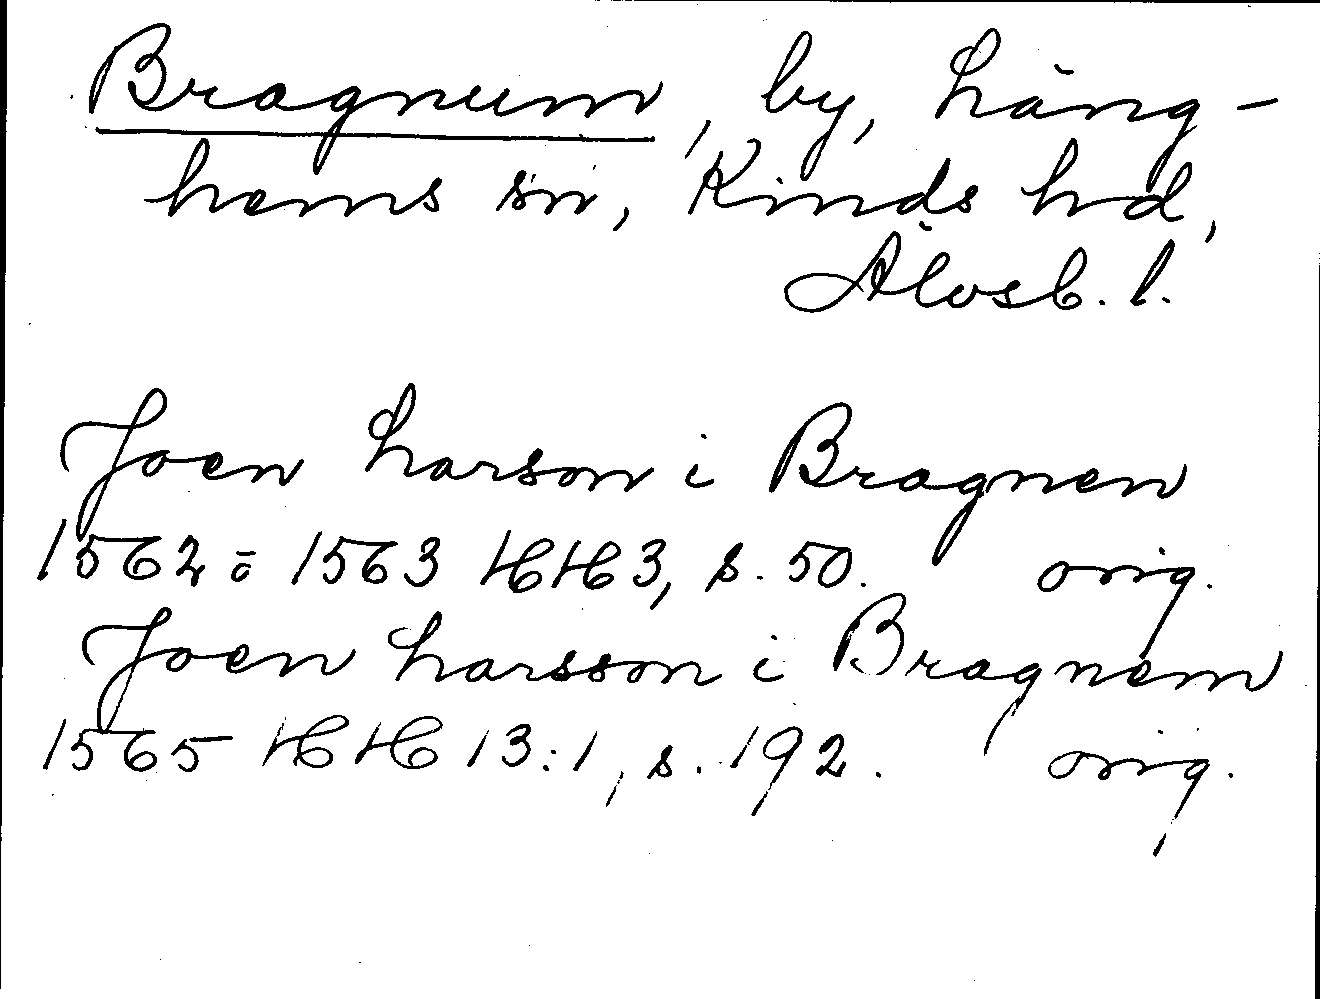 Bragnum, by, Läng-
hems sn, Kinds hd,
Älvsb. l.
Joen Larson i Bragnen
1562 ō 1563 HH 3, s. 50. orig.
Joen Larsson i Bragnem
1565 HH 13:1, s. 192. orig.